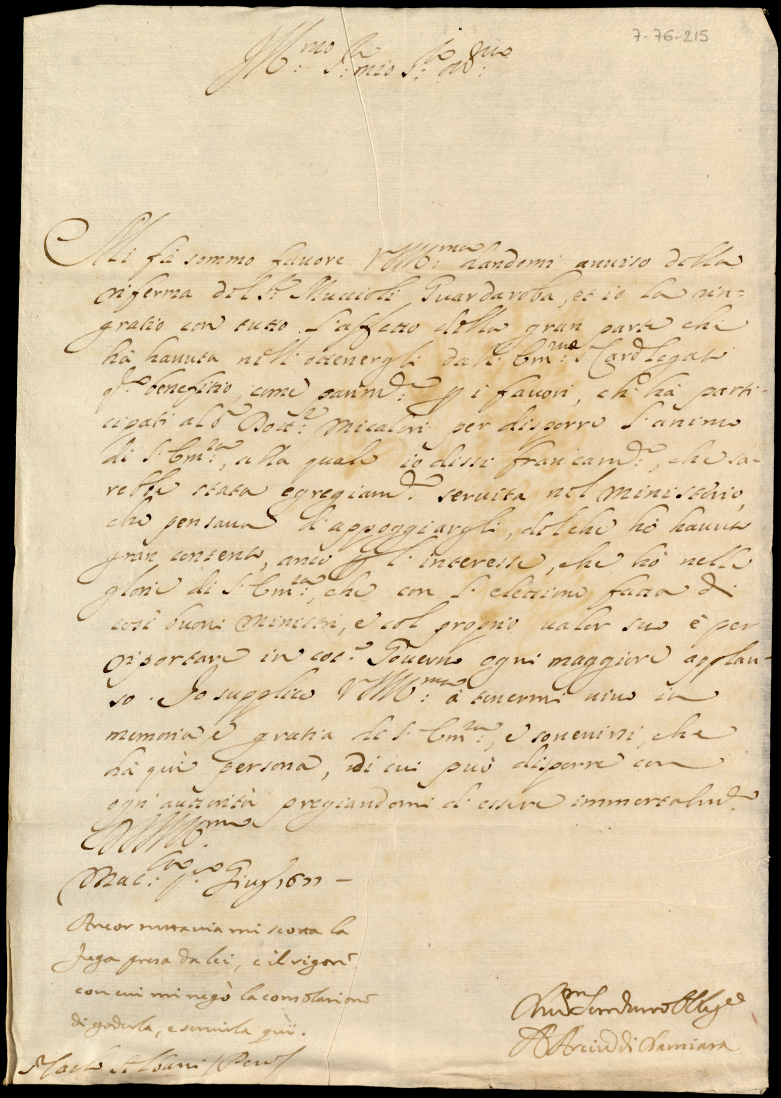 7-76-215
Ill:mo S:r mio S:r
Mi fà sommo favore V S Ill:ma dandomi avviso della
riferma del S:r Muccioli Guardaroba, et io la rin-
gratio con tutto l'affetto della gran parte che
hà havuta nell'ottenergli dall'Em:mo S:r Card Legati
q:to benefitio, come parim:te p i favori, ch'hà parti-
cipati al S:r Dott:r Micalori per disporre l'animo
di S: Em:za, alla quale io dissi francam:te, che sa-
rebbe stata egregiam:te servita nel Ministerio,
che pensava d'appoggiargli, del che hò havuto
gran contento, anco p l'interesse, che hò nelle
glorie di S: Em:za, che con l'elettione fatta di
così buoni Ministri, e col proprio valor suo è per
riportare in cot:o Governo ogni maggiore applau-
so. Io supplico V S Ill:ma à tenermi vivo in
memoria e gratia di S: Em:za, e sovenirsi, che
hà quì persona, di cui può disporre con
ogni autorità pregiandomi di essere immortalm:te
D V S Ill:ma
Mac:ta p:o Giug 1677 -
Ancor tuttavia mi scotta la
fuga presa da lei, e il rigore
con cui mi negò la consolatione
di goderla, e servirla quì.
Ser Obligo
di Damiata
S:r Albani / Pesaro